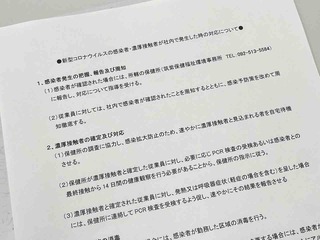 ●新型コロナウイルスの感染者・濃厚接触者が社内で発生した時の対応について●
1、感染者発生の把握、報告及び周知
(1)感染者が確認された場合には、所轄の保健所(筑紫保健福祉環境事務所 TEL:092-513-5584)
に報告し、対応について指導を受ける。
(2)従業員に対しては、社内で感染者が確認されたことを周知するとともに、感染予防策を改めて周
知徹底する。
2、濃厚接触者の確定及び対応
(1)保健所の調査に協力し、感染拡大防止のため、速やかに濃厚接触者と見込まれる者を自宅待機
させる。
(2)保健所が濃厚接触者と確定した従業員に対し、必要に応じPCR検査の受検あるいは感染者との
最終接触から14日間の健康観察を行う必要があることから、保健所の指示に従う。
(3)濃厚接触者と確定された従業員に対し、発熱又は呼吸器症状(軽症の場合を含む)を呈した場合
には、保健所に連絡してPCR検査を受検するよう促し、速やかにその結果を報告させる
の消毒
感染者が勤務した区域の消毒を行う。